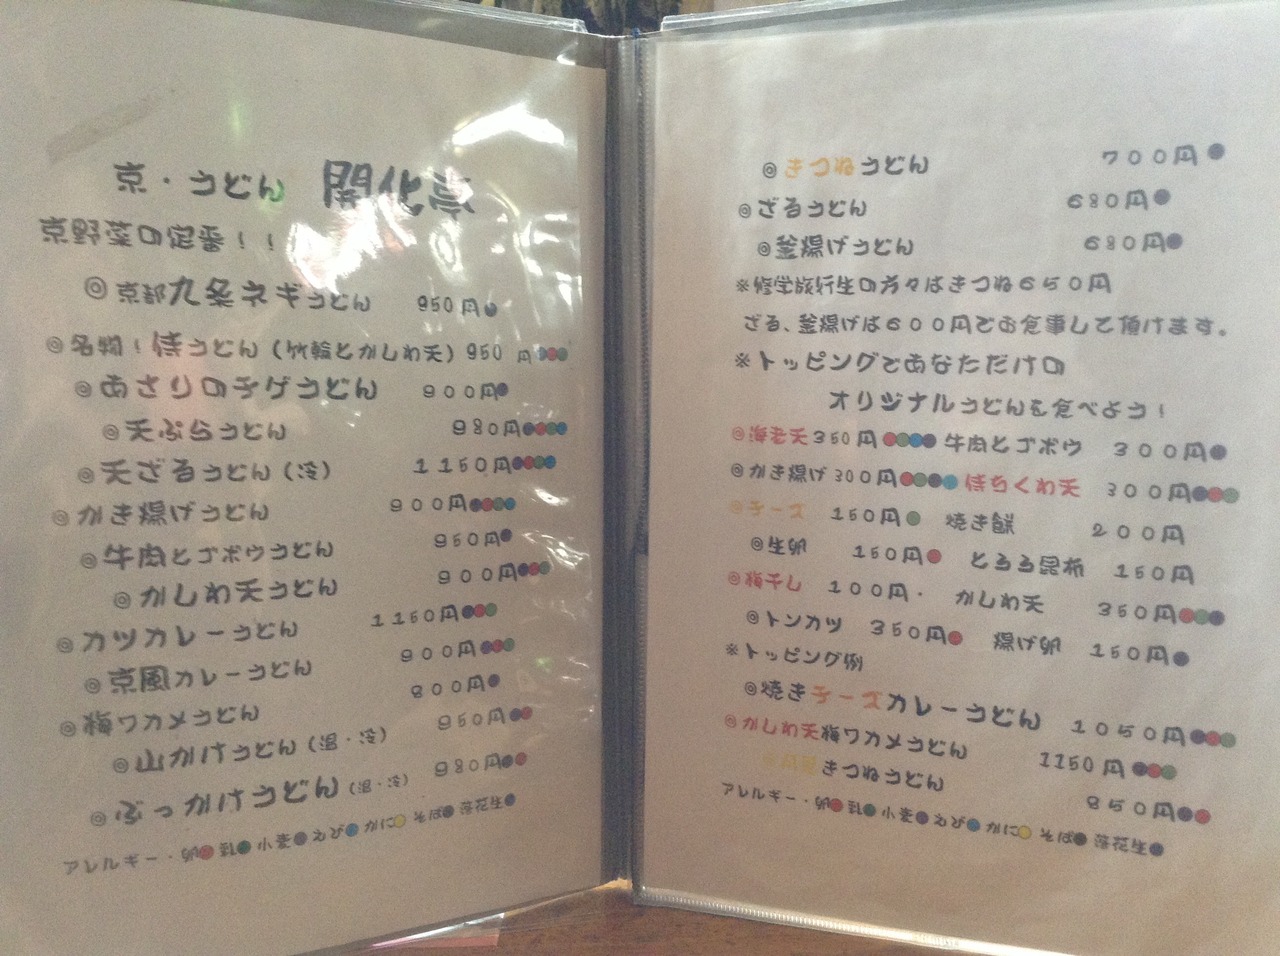 京・うどん 開化亭
京野菜の定番！！
◎京都九条ネギうどん 950円
◎名物！侍うどん（竹輪とかしわ天）950円
◎あさりのチゲうどん 900円
◎天ぷらうどん 980円
◎天ざるうどん（冷） 1150円
◎かき揚げうどん 900円
◎牛肉とゴボウうどん 950円
◎かしわ天うどん 900円
◎カツカレーうどん 1150円
◎京風カレーうどん 900円
◎梅ワカメうどん 800円
◎山かけうどん（温・冷） 950円
◎ぶっかけうどん（温・冷） 980円
アレルギー・卵 乳 小麦 えび かに そば 落花生
◎きつねうどん 700円
◎ざるうどん 680円
◎釜揚げうどん 680円
※修学旅行生の方々はきつね650円
ざる、釜揚げは600円でお食事して頂けます。
※トッピングであなただけの
オリジナルうどんを食べよう！
◎海老天350円 牛肉とゴボウ 300円
◎かき揚げ300円 侍ちくわ天 300円
◎チーズ 150円 焼き餅 200円
◎生卵 150円 とろろ昆布 150円
◎梅干し 100円・ かしわ天 350円
◎トンカツ 350円 揚げ卵 150円
※トッピング例
◎焼きチーズカレーうどん 1050円
◎かしわ天梅ワカメうどん 1150円
きつねうどん 850円
アレルギー・卵 乳 小麦 えび かに そば 落花生